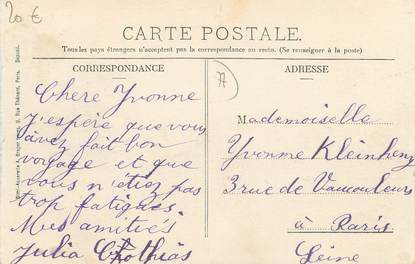 20 €
CARTE POSTALE.
Tous les pays étrangers n'acceptent pas la correspondance au recto. (Se renseigner à la poste)
CORRESPONDANCE
ADRESSE
Chere Yvonne
J'espère que vous
avez fait bon
voyage et que
vous n'etiez pas
trop fatigués.
Mes amitiés
Julia
Mademoiselle
Yvonne Kleinhenz
3 rue de Vaucouleurs
à Paris
Seine